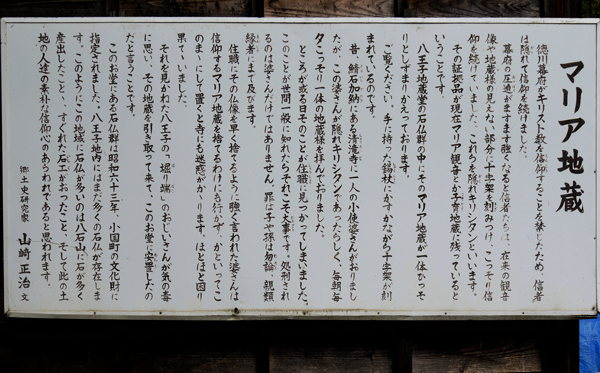 マリア地蔵
徳川幕府がキリスト教を信仰することを禁じたため、信者
は隠れて信仰を続けました。
幕府の圧迫がますます強くなると信者たちは、在来の観音
像や地蔵様の見えない部分に十字架を刻みつけ、こっそり信
仰を続けていました。これらを隠れキリシタンといいます。
その証拠品が現在マリア観音とか子育地蔵に残っていると
いうことです。
八王子地蔵堂の石仏群の中にそのマリア地蔵が一体ひっそ
りとしずまりかえっております。
ご覧ください。手に持った錫杖にかすかながら十字架が刻
まれているのです。
昔 鯖石加納にある清滝寺に一人の小使婆さんがおりまし
たが、この婆さんが隠れキリシタンであったらしく、毎朝毎
夕こっそり一体の地蔵様を拝んでおりました。
ところが或る日そのことが住職に見つかってしまいました。
このことが世間一般に知れたらそれこそ大事です。処刑され
るのは婆さんだけではありません。罪は子や孫は勿論、親類
縁者にまで及びます。
住職にその仏像を早く捨てるように強く言われた婆さんは
信仰するマリア地蔵を捨てるわけにも行かず、かといってこ
のままにして置くと寺にも迷惑がかかります。ほとほと困り
果ていました。
それを見かねた八王子の「堀ノ端」のおじいさんが気の毒
に思い、その地蔵を引き取って来て、このお堂に安置したの
だと言うことです。
このお堂にある石仏群は昭和六十三年 小国町の文化財に
指定されました。八王子地内にはまだ多くの石仏が存在しま
す。このようにこの地域に石仏が多いのは八石山に石が多く
産出したこと、すぐれた石工がおったこと、そして此の土
地の人達の素朴な信仰心のあらわれであると思われます。
郷土史研究家 山崎正治 文